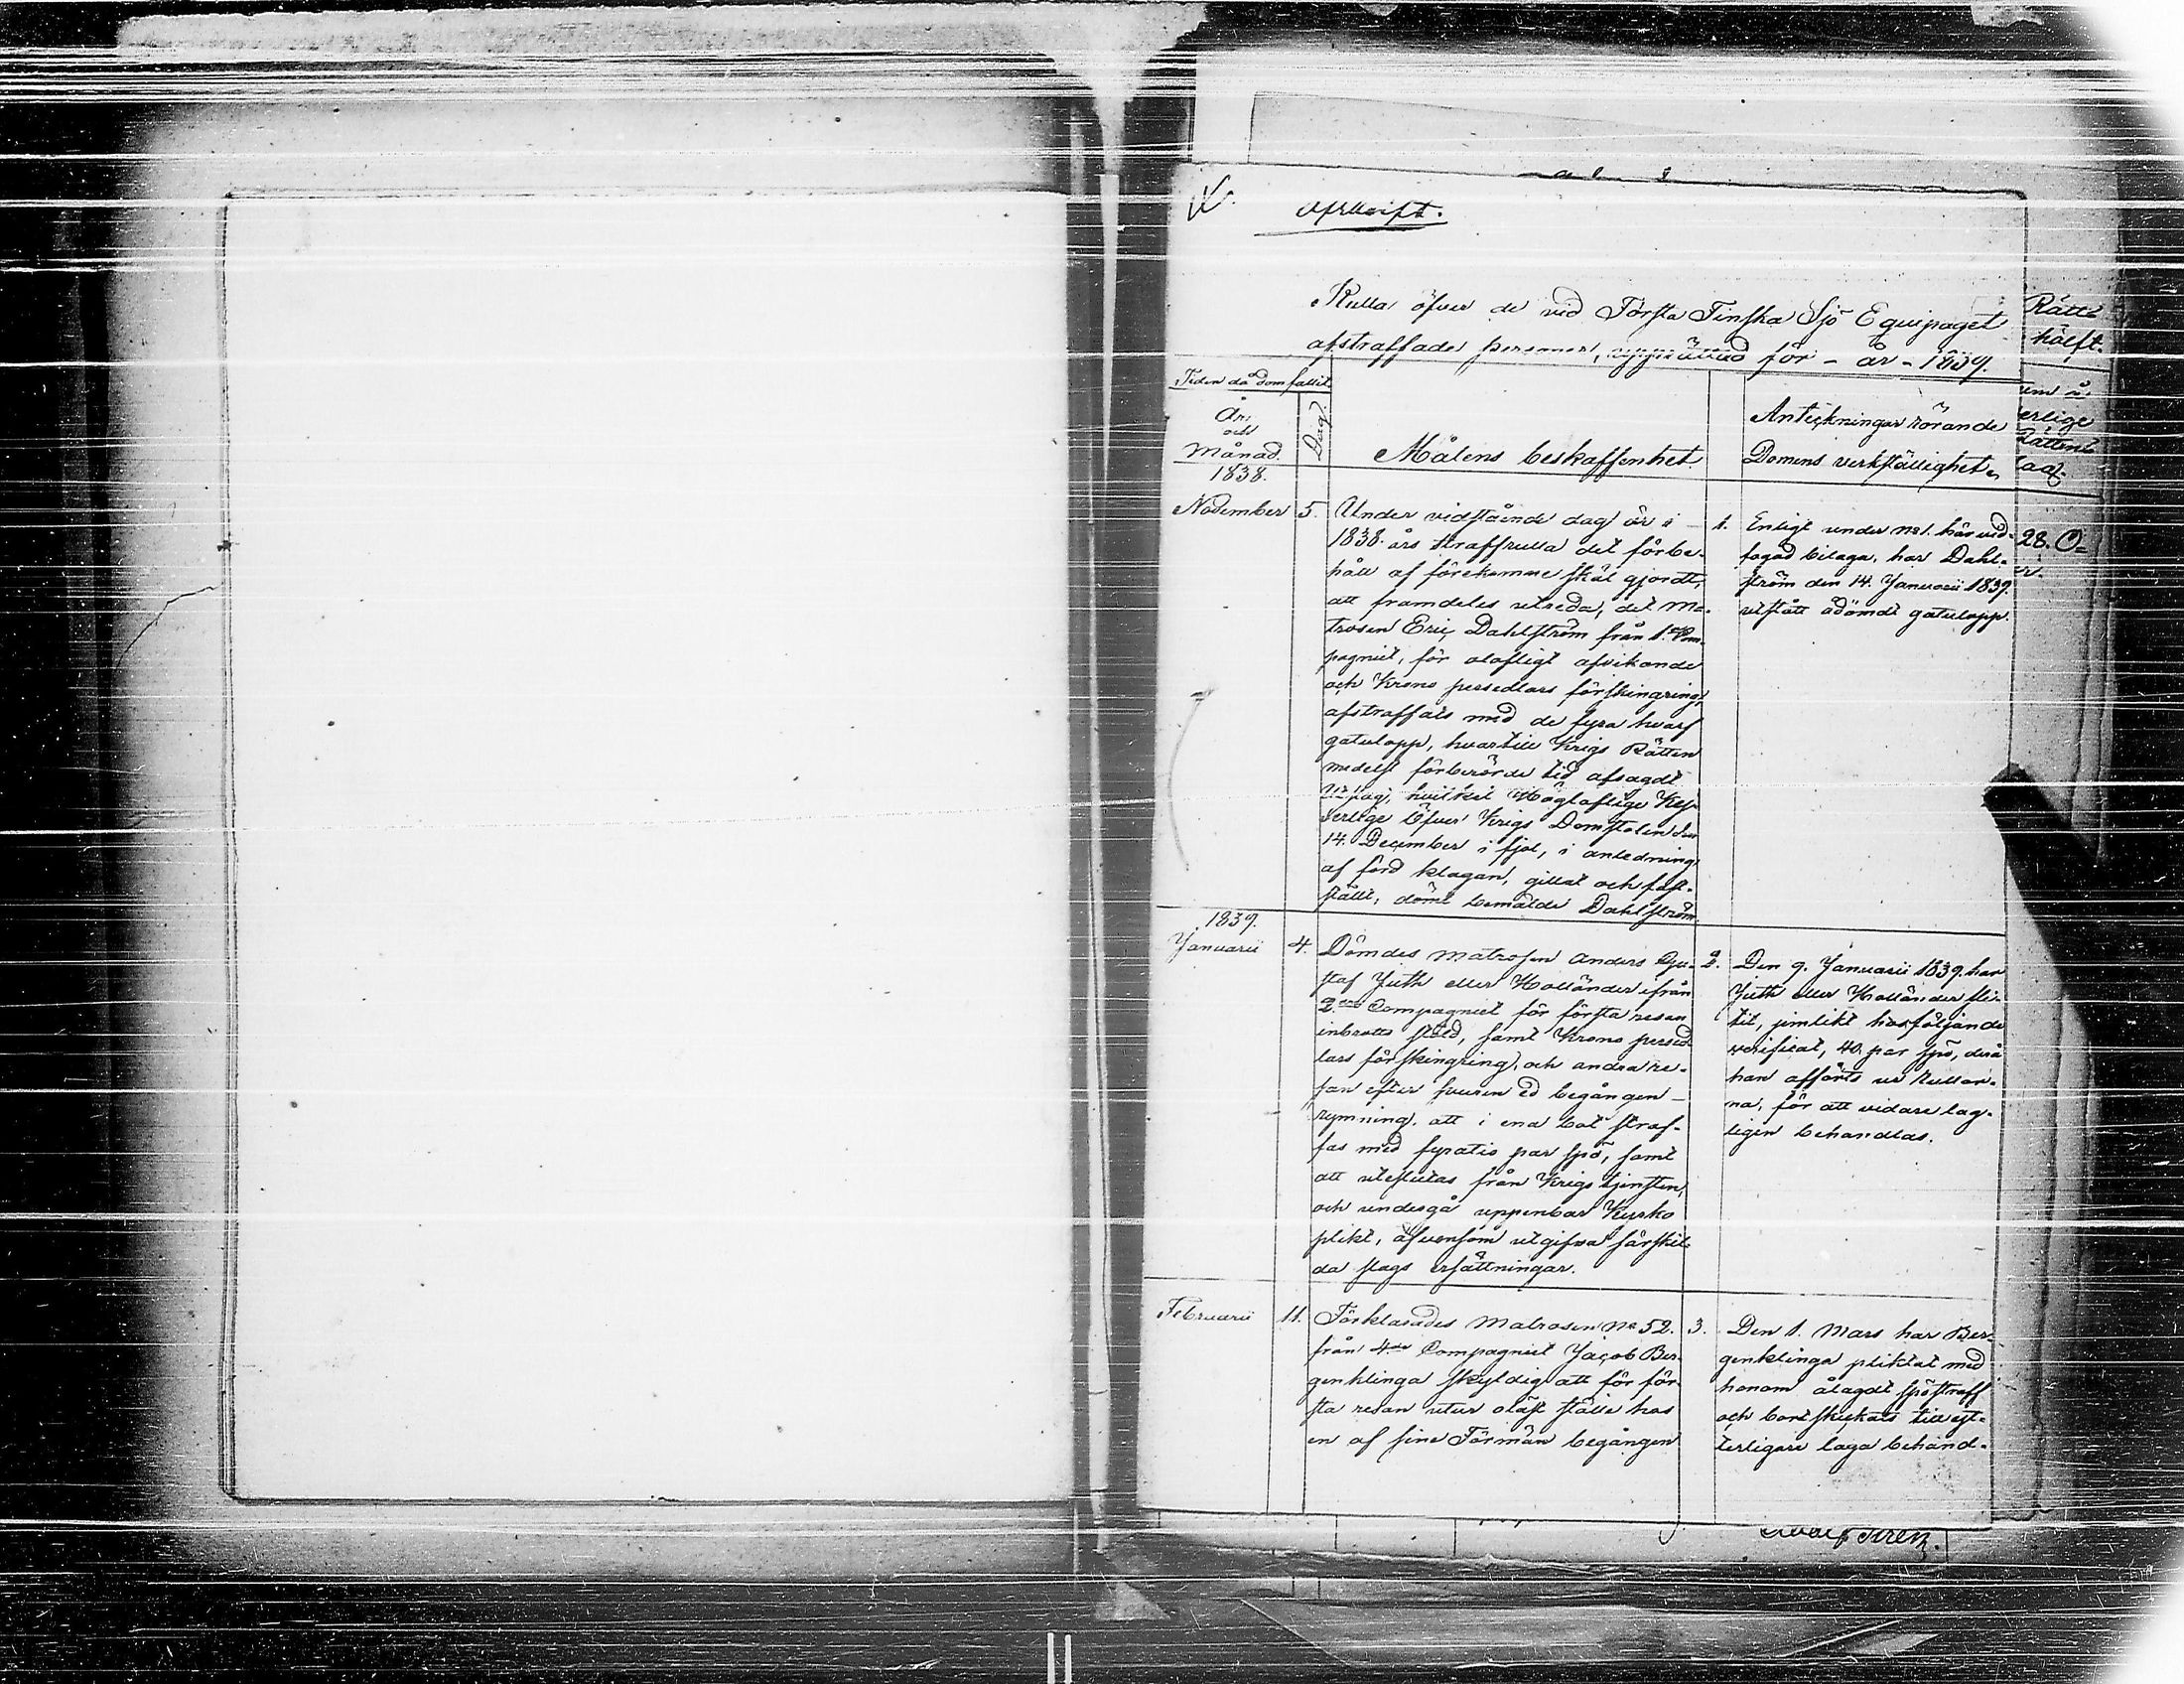 Afskrift.
Rulla öfver de vid Första Finska Sjö Equipaget
afstraffade personer, upprättad för - år - 1839.
Tiden då dom fallit.
År,
och
Månad.
Dag.
Målens beskaffenhet.
Anteckningar rörande
Domens verkställighet.
1838.
November 5.
Under vidstående dag är i
1838. års straffrulla det förbe-
håll af förekomne skäl gjordt,
att framdeles utreda, det Ma-
trosen Eric Dahlström från 1. Com-
pagniet, för olofligt afvikande
och Krono persedlars förskingring,
afstraffats med de fyra hvarf
gatulopp, hvartill Krigs Rätten
medelst förberörde tid afsagdt
Utslag, hvilket Höglofliga Kej-
serlige Öfver Krigs Domstolen den
14. December i fjol, i anledning
af förd klagan, gillat och fast-
ställt, dömt bemälde Dahlström
1. Enligt under No 1. här vid-
fogad bilaga, har Dahl-
ström den 14. Januarii 1839.
utstått ådömdt gatulopp.
1839.
Januarii 4.
Dömdes Matrosen Anders Gu-
staf Juth eller Holländer ifrån
2. Compagniet för första resan
inbrotts stöld, samt Krono persed-
lars förskingring, och andra re-
san efter svuren ed begången
rymning, att i ena bot straf-
fas med fyratio par spö, samt
att uteslutas från Krigs tjensten,
och undergå uppenbar Kyrko
plikt, äfvensom utgifva särskil-
da slags ersättningar.
2. Den 9. Januarii 1839. har
Juth eller Holländer sli-
tit, jemlikt härföljande
verificat, 40. par spö, derå
han afförts ur Rullor-
na, för att vidare lag-
ligen behandlas.
Februarii 11.
Förklarades Matrosen No 52.
från 4. Compagniet Jacob Ber-
genklinga skyldig att för för-
sta resan utur oläst ställe hos
en af sine Förmän begången
3. Den 1. Mars har Ber-
genklinga pliktat med
honom ålagdt spöstraff
och bortskickats till yt-
terligare laga behand-
Rätts
hålft.
erlige
Rättens
28. O-